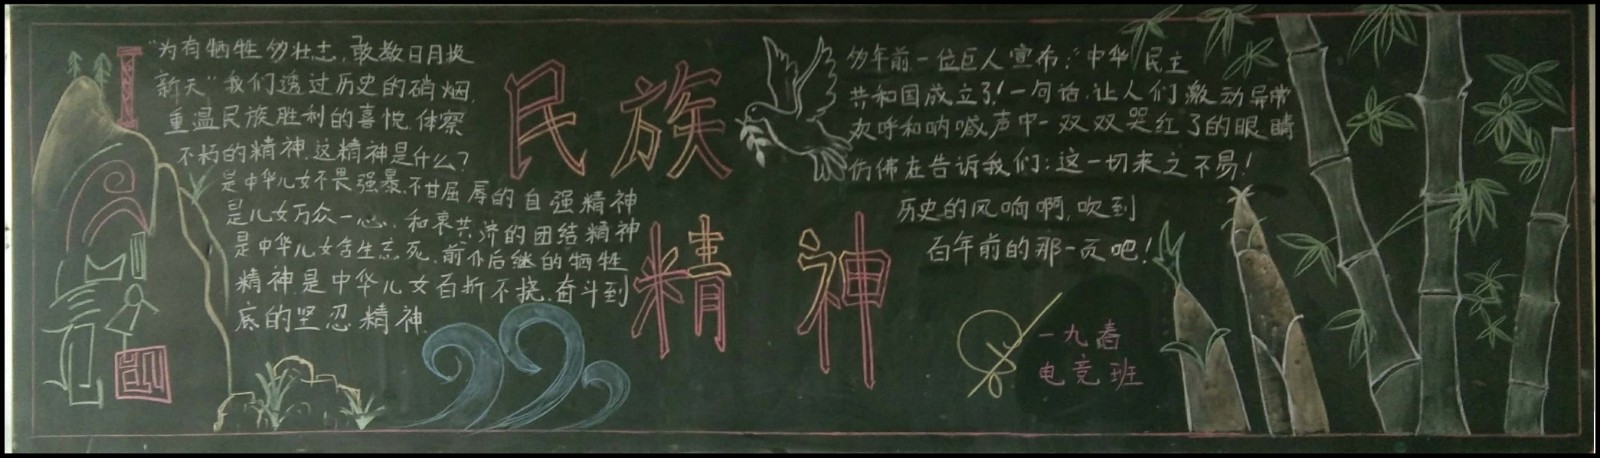 "为有牺牲多壮志,敢教日月换
新天"我们透过历史的硝烟,
重温民族胜利的喜悦,体察
不朽的精神.这精神是什么?
是中华儿女不畏强暴.不甘屈辱的自强精神
是儿女万众一心.和衷共济的团结精神
是中华儿女舍生忘死.前仆后继的牺牲
精神.是中华儿女百折不挠.奋斗到
底的坚忍精神
民族
精神
多年前一位巨人宣布:"中华 民主
共和国成立了!一句话.让人们激动异常
欢呼和呐喊声中一双双哭红了的眼睛
仿佛在告诉我们:这一切来之不易!
历史的风响啊,吹到
百年前的那一页吧!
一九春
电竞班